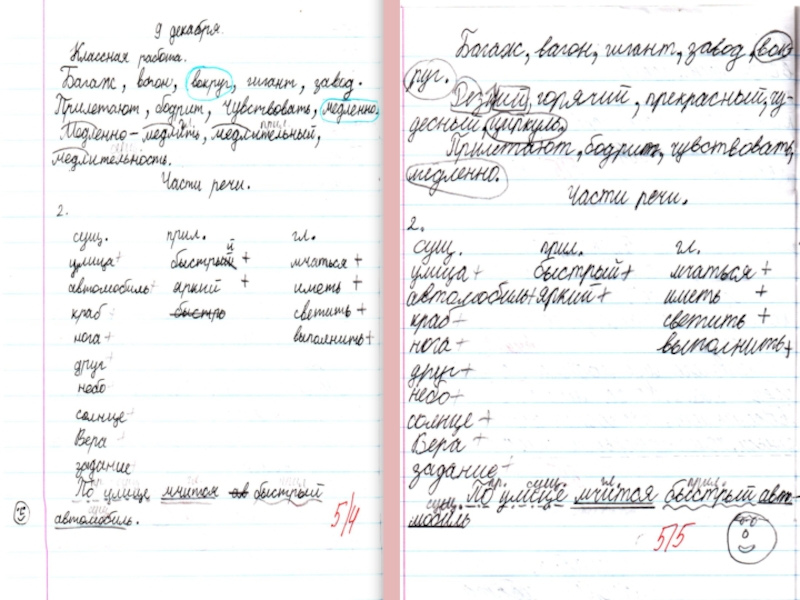 9 декабря.
Классная работа.
Багаж, вагон, вокруг, гигант, завод.
Прилетают, бодрит, чувствовать, медленно.
Медленно – медлить, медлительный,
медлительность.
Части речи.
2.
сущ. прил. гл.
улица+ быстрый + мчаться +
автомобиль+ яркий + иметь +
краб быстро светить +
нога+ выполнить+
друг+
небо+
солнце+
Вера
задание
По улице мчится ав быстрый
автомобиль.
5
5/4
Багаж, вагон, гигант, завод, вок-
руг.
горячий, прекрасный, чу-
десный, циркуль.
Прилетают, бодрит, чувствовать,
медленно.
Части речи.
2.
сущ. прил. гл.
улица+ быстрый+ мчаться +
автомобиль+ яркий+ иметь +
краб– светить +
нога+ выполнить+
друг+
небо+
солнце+
Вера+
задание+
пр. сущ. гл. прил.
По улице мчится быстрый авто-
сущ.
мобиль
5/5